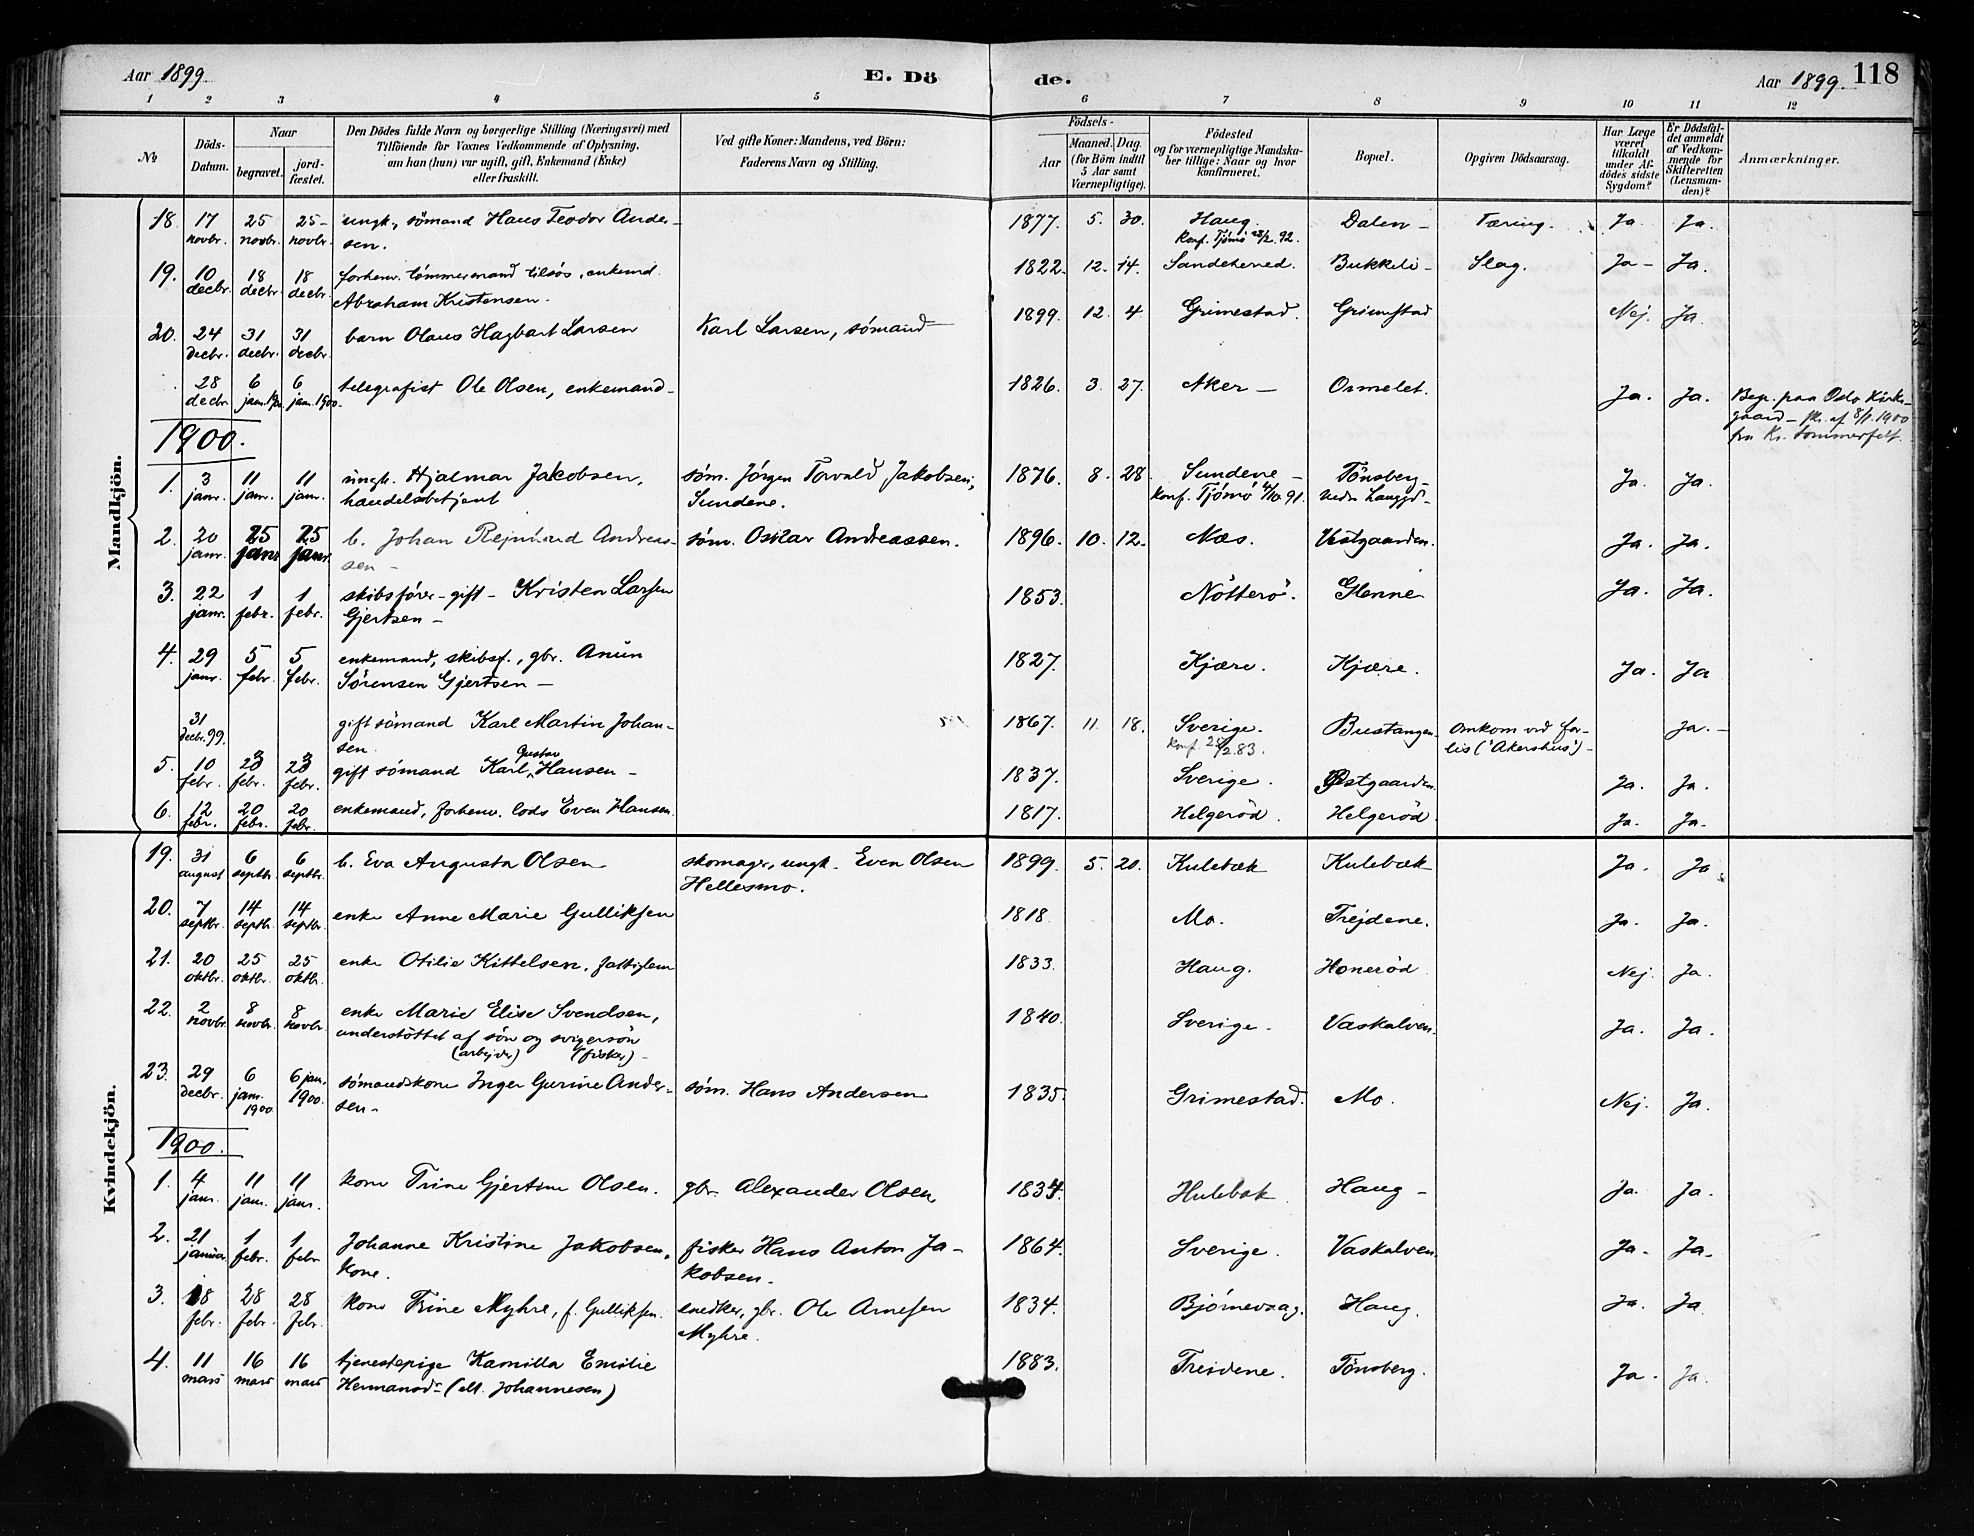 Aar 1899. E. Dö de. Aar 1899. 118
1 2 3 3 4 5 6 7 8 9 10 11 12
№ Döds-Datum. Naar begravet. jordfæstet. Den Dödes fulde Navn og borgerlige Stilling (Næringsvei) med Tilföiende for Voxnes Vedkommende af Oplysning, om han (hun) var ugift, gift, Enkemand (Enke) eller fraskilt. Ved gifte Koner: Mandens, ved Börn: Faderens Navn og Stilling. Födsels- Aar Maaned. Dag. (for Börn indtil 5 Aar samt Værnepligtige). Födested og for værnepligtige Mandskaber tillige: Naar og hvor konfirmeret. Bopæl. Opgiven Dödsaarsag. Har Læge været tilkaldt under Afdödes sidste Sygdom? Er Dödsfaldet anmeldt af Vedkommende for Skifteretten (Lensmanden)? Anmærkninger.
Mandkjön.
18. 17 novbr. 25 novbr. 25 novbr. ungk., sömand Hans Teodor Andersen. 1877. 5. 30. Haug. konf. Tjømø 28/2. 92. Dalen - Tæring. Ja. Ja.
19. 10 decbr. 18 decbr. 18 decbr. forhenv. tömmermand tilsøs, enkemd. Abraham Kristensen - 1822. 12. 14. Sandeherred. Bukkeli - Slag. Ja - Ja.
20. 24 decbr. 31 decbr. 31 decbr. barn Olaus Hagbart Larsen Karl Larsen, sömand 1899. 12. 4. Grimestad. Grimestad Nej. Ja.
28 decbr. 6 jan. 1900 6 jan. 1900. telegrafist Ole Olsen, enkemand - 1826. 3. 27. Aker - Ormelet. Ja. Ja. Begr. paa Oslo Kirkegaard - af 8/1. 1900 fra Kr. Sommerfelt.
1900.
1. 3 janr. 11 janr. 11 janr. ungk. Hjalmar Jakobsen, handelsbetjent söm. Jörgen Torvald Jakobsen, Sundene. 1876. 8. 28. Sundene - konf. Tjömö 4/10. 91. Tönsberg -
2. 20 janr. 25 janr. 25 janr. b. Johan Rejnhard Andreassen - söm. Oskar Andreassen. 1896. 10. 12. Næs. Vestgaarden. Ja. Ja.
3. 22 janr. 1 febr. 1 febr. skibsförer - gift - Kristen Larsen Gjertsen - 1853. Nötterö. Glenne Ja. Ja.
4. 29 janr. 5 febr. 5 febr. enkemand, skibsf., gbr. Anun Sörensen Gjertsen - 1827. Kjære. Kjære. Ja. Ja
31 decbr. 99. gift sömand Karl Martin Johansen. 1867. 11. 18. Sverige. konf. 25/2. 83. Bustangen Omkom ved forlis ("Akershus") - Ja. -
5. 10 febr. 20 febr. 20 febr. gift sömand Karl Gustav Hansen - 1837. Sverige. Østgaarden. Ja. Ja.
6. 12 febr. 20 febr. 20 febr. enkemand, forhenv. lods Even Hansen. 1817. Helgeröd. Helgeröd Ja. Ja.
Kvindekjön.
19. 31 august 6 septbr. 6 septbr. b. Eva Augusta Olsen skomager, ungk. Even Olsen Hellesmo. 1899. 5. 20. Kulebæk Kulebæk Ja. Ja
20. 7 septbr. 14 septbr. 14 septbr. enke Anne Marie Gulliksen 1818. Mo. Trejdene. Ja. Ja.
21. 20 oktbr. 25 oktbr. 25 oktbr. enke Otilie Kittelsen, fattiglem 1833. Haug. Honeröd. Nej. Ja.
22. 2 novbr. 8 novbr. 8 novbr. enke Marie Elise Svendsen, understöttet af sön og svigersön (arbejder) (fisker) - 1840. Sverige. Vaskalven. Ja. Ja.
23. 29 decbr. 6 janr. 1900 6 jan. 1900. sömandskone Inger Gurine Andersen - söm. Hans Andersen 1835. Grimestad. Mo. Nej. Ja.
1900.
1. 4 janr. 11 janr. 11 janr. kone Trine Gjertine Olsen. gbr. Alexander Olsen, 1834. Hulebak Haug - Ja. Ja.
2. 21 januar 1 febr. 1 febr. Johanne Kristine Jakobsen, kone. fisker Hans Anton Jakobsen. 1864. Sverige. Vaskalven. Ja. Ja.
3. 18 febr. 28 febr. 28 febr. kone Trine Myhre, f. Gulliksen. snedker, gbr. Ole Arnesen Myhre. 1834. Bjørnevaag. Haug. Ja. Ja
4. 11 mars 16 mars 16 mars tjenestepige Kamilla Emilie Hermansd. (ell. Johannesen) 1883. Treidene. Tönsberg. Ja. Ja.